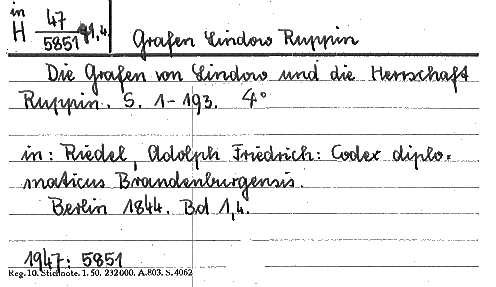 in
H 47/5851 1,4.
Grafen Lindow Ruppin
Die Grafen von Lindow und die Herrschaft
Ruppin. S. 1-193. 4°
in: Riedel, Adolph Friedrich: Codex diplo-
maticus Brandenburgensis.
Berlin 1844. Bd 1,4.
1947: 5851
Reg. 10. Stichnote. 1. 50. 232000. A.803. S. 4062